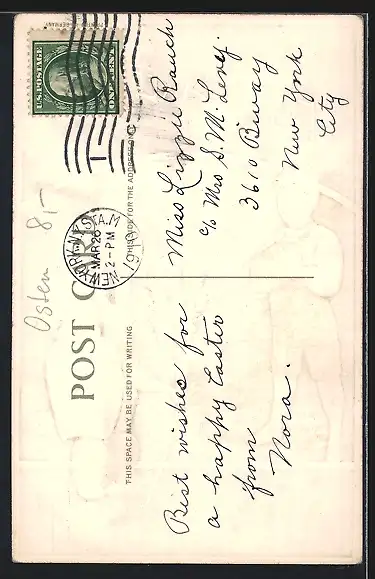 POST CARD
THIS SPACE MAY BE USED FOR WRITING
THIS SIDE FOR THE ADDRESS ONLY
U.S. POSTAGE
ONE CENT
NEW YORK, N.Y. STA. M
MAR 26
2 - PM
1910
1
Osten 8,-
Best wishes for
a happy Easter
from
Nora.
Miss Lizzie Rauch
c/o Mrs S. M. Levy.
3610 Bway
New York
City